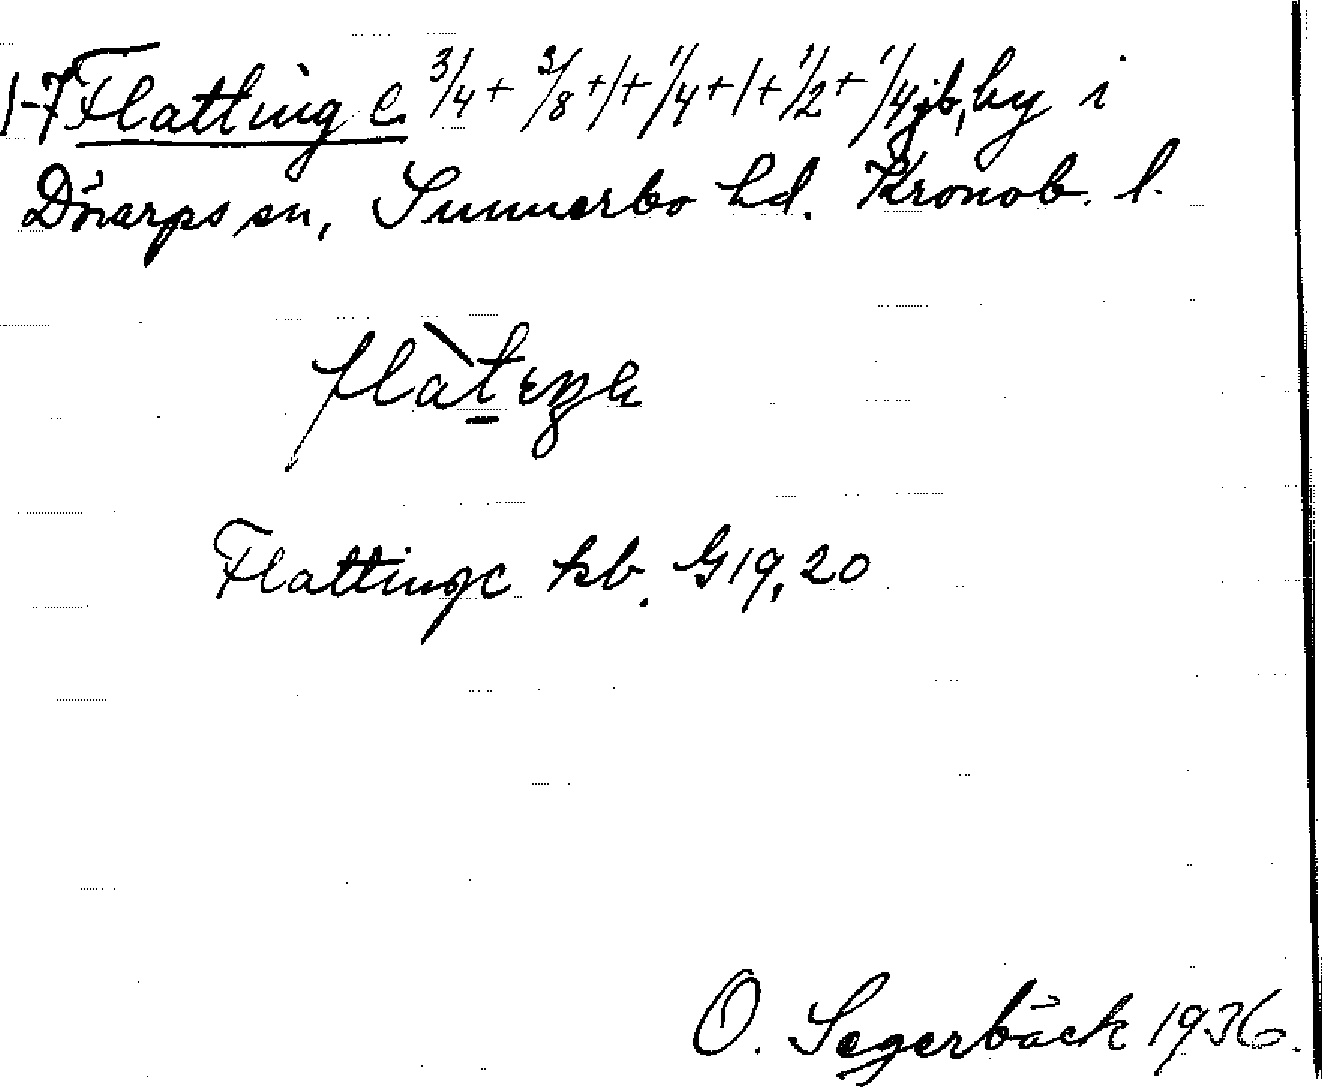 1-7 Flattinge 3/4 + 3/8 + 1 + 1/4 + 1 + 1/2 + 1/4 jb, by i
Dörarps sn, Sunnerbo hd. Kronob. l.
Flattinge kb. G19, 20
O. Segerbäck 1936.